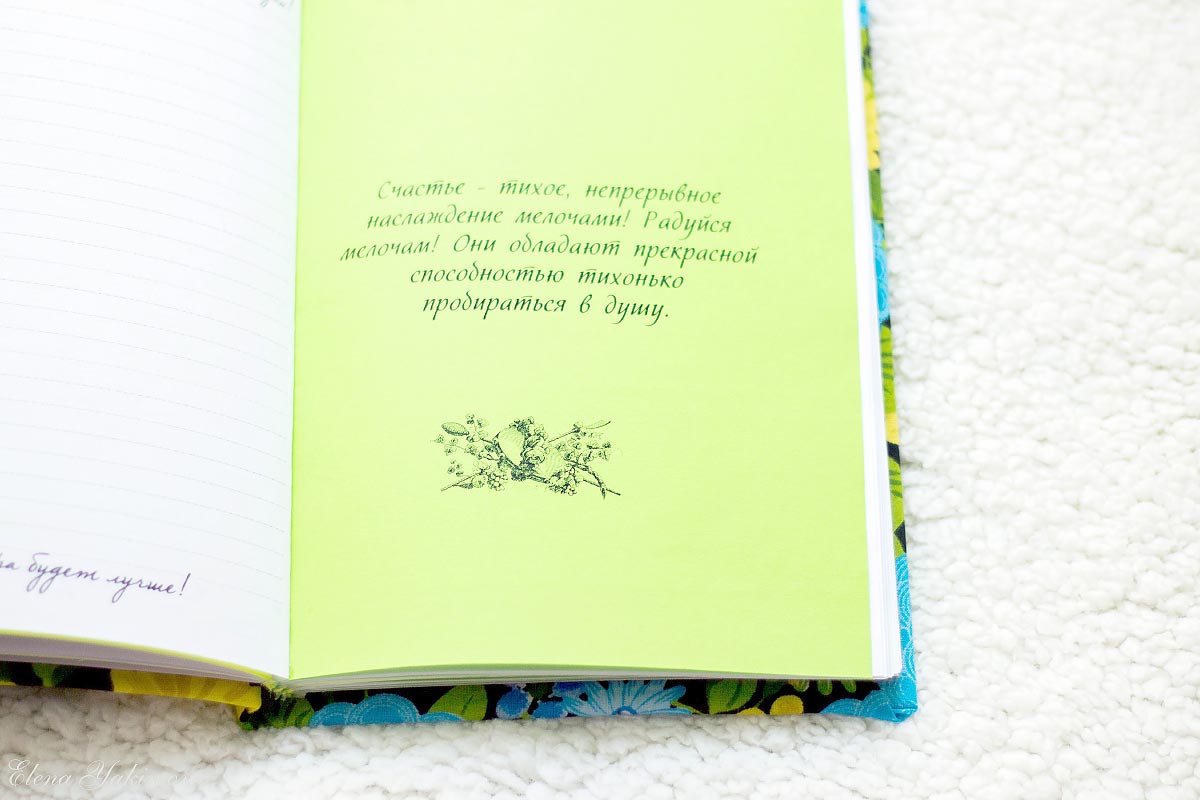 Счастье - тихое, непрерывное
наслаждение мелочами! Радуйся
мелочам! Они обладают прекрасной
способностью тихонько
пробираться в душу.
будет лучше!
Elena